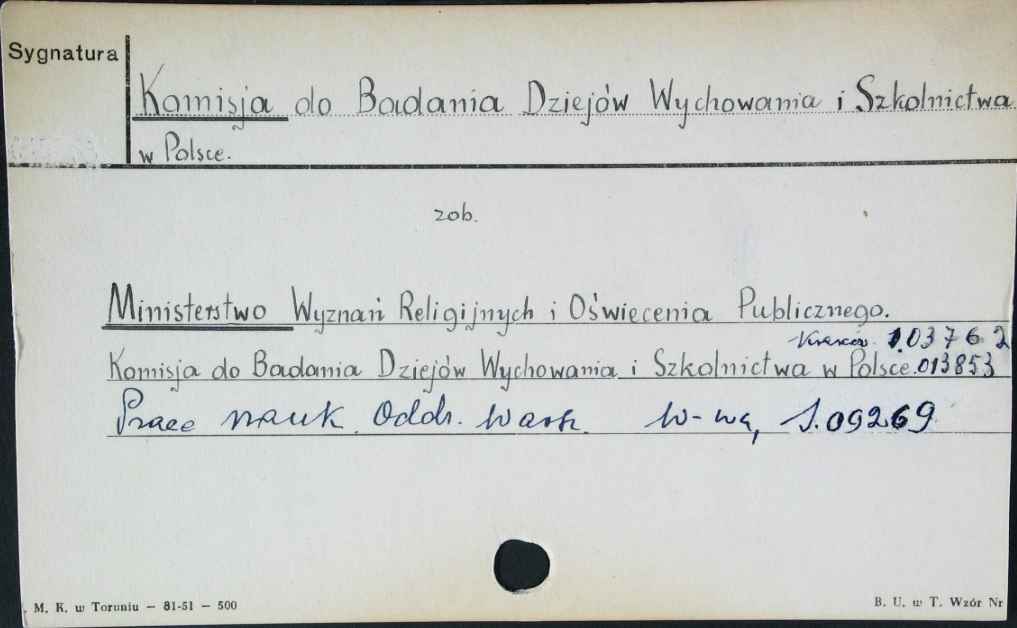 Sygnatura
Komisja do Badania Dziejów Wychowania i Szkolnictwa
w Polsce.
zob.
Ministerstwo Wyznań Religijnych i Oświecenia Publicznego.
Kraków 1.03762
Komisja do Badania Dziejów Wychowania i Szkolnictwa w Polsce. 013853
Prace nauk. Oddz. Warsz. W-wa, 1.09269
M. K. w Toruniu — 81-51 — 500
B. U. w T. Wzór Nr